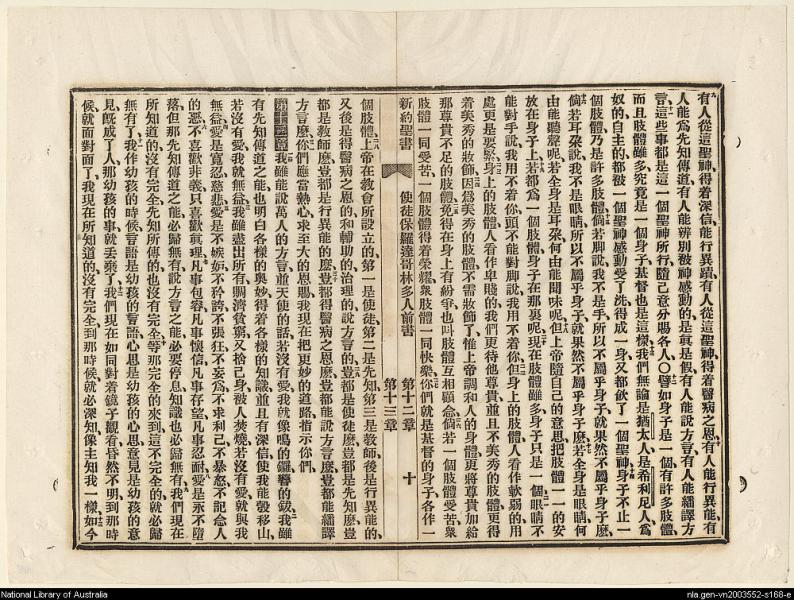 有人從這聖神得着深信、能行異蹟、有人從這聖神得着醫病之恩、有人能行異能、有
人能爲先知傳道、有人能辨別被神感動的是眞是假、有人能說方言、有人能繙譯方
言、這些事都是這一個聖神所行、隨己意分賜各人〇譬如身子是一個、有許多肢體、
而且肢體雖多、究竟是一個身子、基督也是這樣、我們無論是猶太人、是希利尼人、爲
奴的、自主的、都被一個聖神感動、受了洗、得成一身、又都飲了一個聖神、身子不止一
個肢體、乃是許多肢體、倘若脚說、我不是手、所以不屬乎身子、就果然不屬乎身子麼、
倘若耳朶說、我不是眼睛、所以不屬乎身子、就果然不屬乎身子麼、若全身是眼睛、何
由能聽聲呢、若全身是耳朶、何由能聞味呢、但上帝隨自己的意思、把肢體一一的安
放在身子上、若都爲一個肢體、身子在那裏呢、現在肢體雖多、身子只是一個、眼睛不
能對手說、我用不着你、頭不能對脚說、我用不着你、但身上的肢體、人看作軟弱的、用
處更是要緊、身上的肢體、人看作卑賤的、我們更待他尊貴、並且不美秀的肢體、更得
着美秀的妝飾、因爲美秀的肢體、不需妝飾了、惟上帝調和人的身體、更將尊貴加給
那尊貴不足的肢體、免得在身上有紛爭、也叫肢體互相顧念、倘若一個肢體受苦、衆
肢體一同受苦、一個肢體得着榮耀、衆肢體一同快樂、你們就是基督的身子、各作一
新約聖書 使徒保羅達哥林多人前書 第十二章 第十三章 十
個肢體、上帝在教會所設立的、第一是使徒、第二是先知、第三是教師、後是行異能的、
又後是得醫病之恩的、和輔助的、治理的、說方言的、豈都是使徒麼、豈都是先知麼、豈
都是教師麼、豈都是行異能的麼、豈都得醫病之恩麼、豈都能說方言麼、豈都能繙譯
方言麼、你們應當熱心求至大的恩賜、我現在把更妙的道路指示你們、
第十三章 我雖能說萬人的方言、並天使的話、若沒有愛、我就像鳴的鑼、響的鈸、我雖
有先知傳道之能、也明白各樣的奧妙、得着各樣的知識、並且有深信、使我能彀移山、
若沒有愛、我就無益、我雖盡出所有、賙濟貧窮、又捨己身、被人焚燒、若沒有愛、就與我
無益、愛是寬忍、慈悲、愛是不嫉妬、不矜誇、不張狂、不妄爲、不求利己、不暴怒、不記念人
的惡、不喜歡非義、只喜歡眞理、凡事包容、凡事懷信、凡事存望、凡事忍耐、愛是永不墮
落、但那先知傳道之能必歸無有、說方言之能必要停息、知識也必歸無有、我們現在
所知道的沒有完全、先知所傳的、也沒有完全、等那完全的來到、這不完全的就必歸
無有了、我作幼孩的時候、言語是幼孩的言語、心思是幼孩的心思、意見是幼孩的意
見、旣成了人、那幼孩的事就丟棄了、我們現在如同對着鏡子觀看、昏然不明、到那時
候、就面對面了、我現在所知道的沒有完全、到那時候就必深知、像主知我一樣、如今
National Library of Australia
nla.gen-vn2003552-s168-e